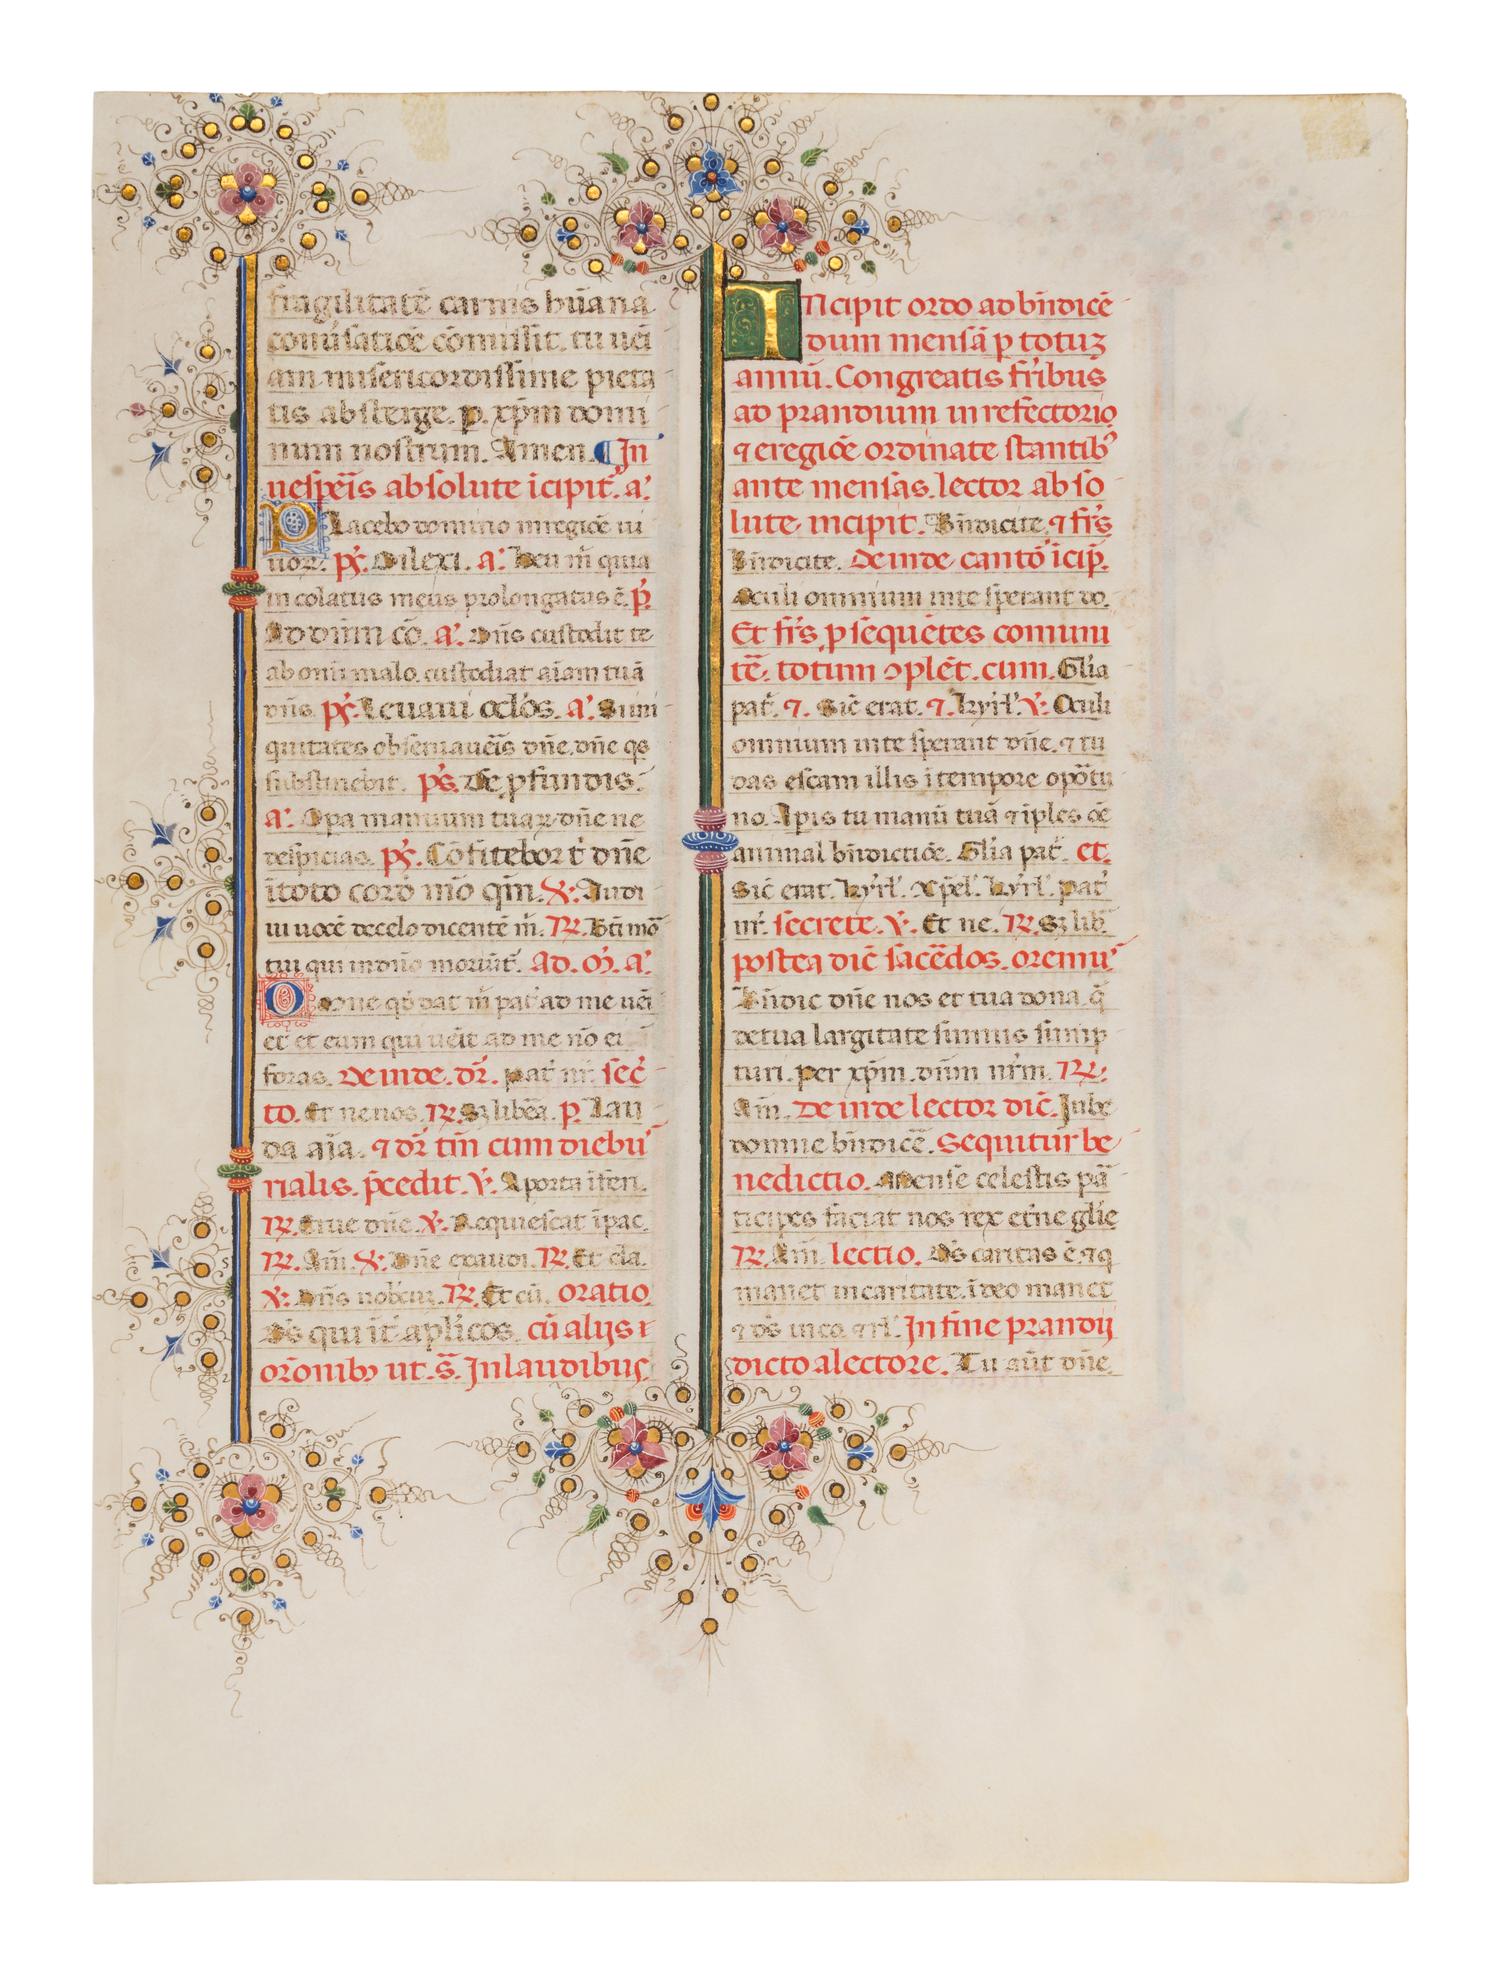 fragilitatē carnis hūana
cōuıſatıōe cōmıſſit. tu ueı
am miſericordiſſime pieta
tis abſterge. p. xp̄m domi
num noſtrum. Amen. ¶ In
ueſpeīs abſolute īcipit. a.
Placebo domino in regiōe ui
uoꝝ. pſ. Dilexi. a. Heu m̄ quia
incolatus meus prolongatus ē. pſ.
Ad dn̄m cō. a. Dn̄s cuſtodit te
ab oni malo. cuſtodiat aīam tuā
dn̄s. pſ. Leuaui oclōs. a. Si ini
quitates obſeruaueīs dn̄e. dn̄e q̄s
ſubſtinebit. pſ. De ꝓfundis.
a. Opa manuum tuaꝝ dn̄e ne
deſpicias. pſ. Cōfitebor t̄ dn̄e
ī toto cord̄ mō qm̄. ℣. Audi
ui uocē de celo dicentē m̄. ℟. Bt̄i mo
tui qui in dn̄o moriūt̄. Ad. M̄. a.
Omne qd̄ dat m̄ pat̄ ad me uēi
et et eum qui ueit̄ ad me nō ei
foras. Deinde. dr̄. pat̄ nr̄. ſec̄
to. Et ne nos. ℟. Sꝫ libēa. p. Lau
da aīa. ⁊ dr̄ tm̄ cum diebū
rialis. p̄cedit. ℣. A porta iferi.
℟. Erue dn̄e. ℣. Requieſcat ī pac̄.
℟. Am̄. ℣. Dn̄e exaudi. ℟. Et cla.
℣. Dn̄s uobcuꝫ. ℟. Et cū. oratio
Ds̄ qui iт̄ aplicos. cū alijs ⁊
orōnibꝫ ut. s̄. In laudibus.
Incipit ordo ad bn̄dicē
dum menſā p totuꝫ
annū. Congreatis fr̄ibus
ad prandium in refectorio
⁊ e regiōe ordinate ſtantib⁹
ante menſas. lector abſo
lute incipit. Bn̄dicite. ⁊ fr̄s
Bn̄dicite. Deinde cantō icip̄.
Oculi omnium in te ſperant do.
Et fr̄s ꝓſequētes comuni
tē. totum ↄplēt. cum. Glīa
pat̄. ⁊. Sic̄ erat. ⁊. kyrl̄. ℣. Oculi
omnium in te ſperant dn̄e. ⁊ tu
das eſcam illis i tempore opōtu
no. Apis tu manū tuā ⁊ iples oē
animal bn̄dictiōe. Glīa pat̄. et.
Sic̄ erat. kyrl̄. Xp̄el̄. kyrl̄. pat̄
nr̄. ſecrete. ℣. Et ne. ℟. Sꝫ lib̄.
poſtea dic̄ ſacēdos. oremū
Bn̄dic dn̄e nos et tua dona. q̄
de tua largitate ſumus ſump
turi. per xp̄m. dn̄m nr̄m. ℟.
Am̄. Deinde lector dic̄. Iube
domne bn̄dicē. Sequitur be
nedictio. Menſe celeſtis pā
ticipes faciat nos rex etn̄e glīe
℟. Am̄. lectio. Ds̄ caritas ē. ⁊ q
manet in caritate. ī deo manet
⁊ ds̄ in eo. ⁊ rl̄. In fine prandij
dicto a lectore. Tu aūt dn̄e